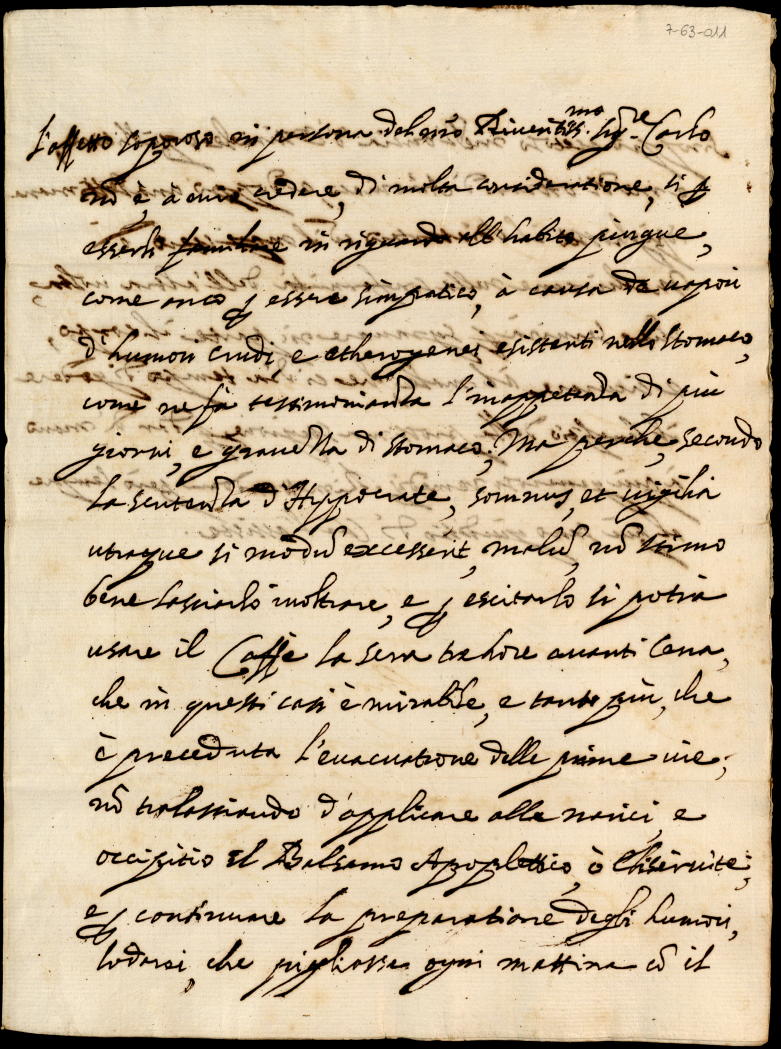 7-63-011
L'affetto soporoso in persona del nrõ Riveritiss.mo Sig.re Carlo
nõ è, à mio credere, di molta consideratione, si p
esserli familiare in riguardo all'habito pingue,
come anco p essere simpatico, à causa de vapori
d'humori crudi, e etherogenei esistenti nello stomaco,
come ne fà testimonianza l'inappetenza di più
giorni, e gravezza di stomaco; Ma perche, secondo
la sentenza d'Hippocrate, somnus, et vigilia
utraque si modũ excesserit, malũ, nõ stimo
bene lasciarlo inoltrare, e p escitarlo si potrà
usare il Caffè la sera tre hore avanti Cena,
che in questi casi è mirabile, e tanto più, che
è preceduta l'evacuatione delle prime vie;
nõ tralasciando d'applicare alle narici, e
occipitio il Balsamo Apopletico, ò
e p continuare la preparatione degli humori,
lodarei, che pigliasse ogni mattina cõ il